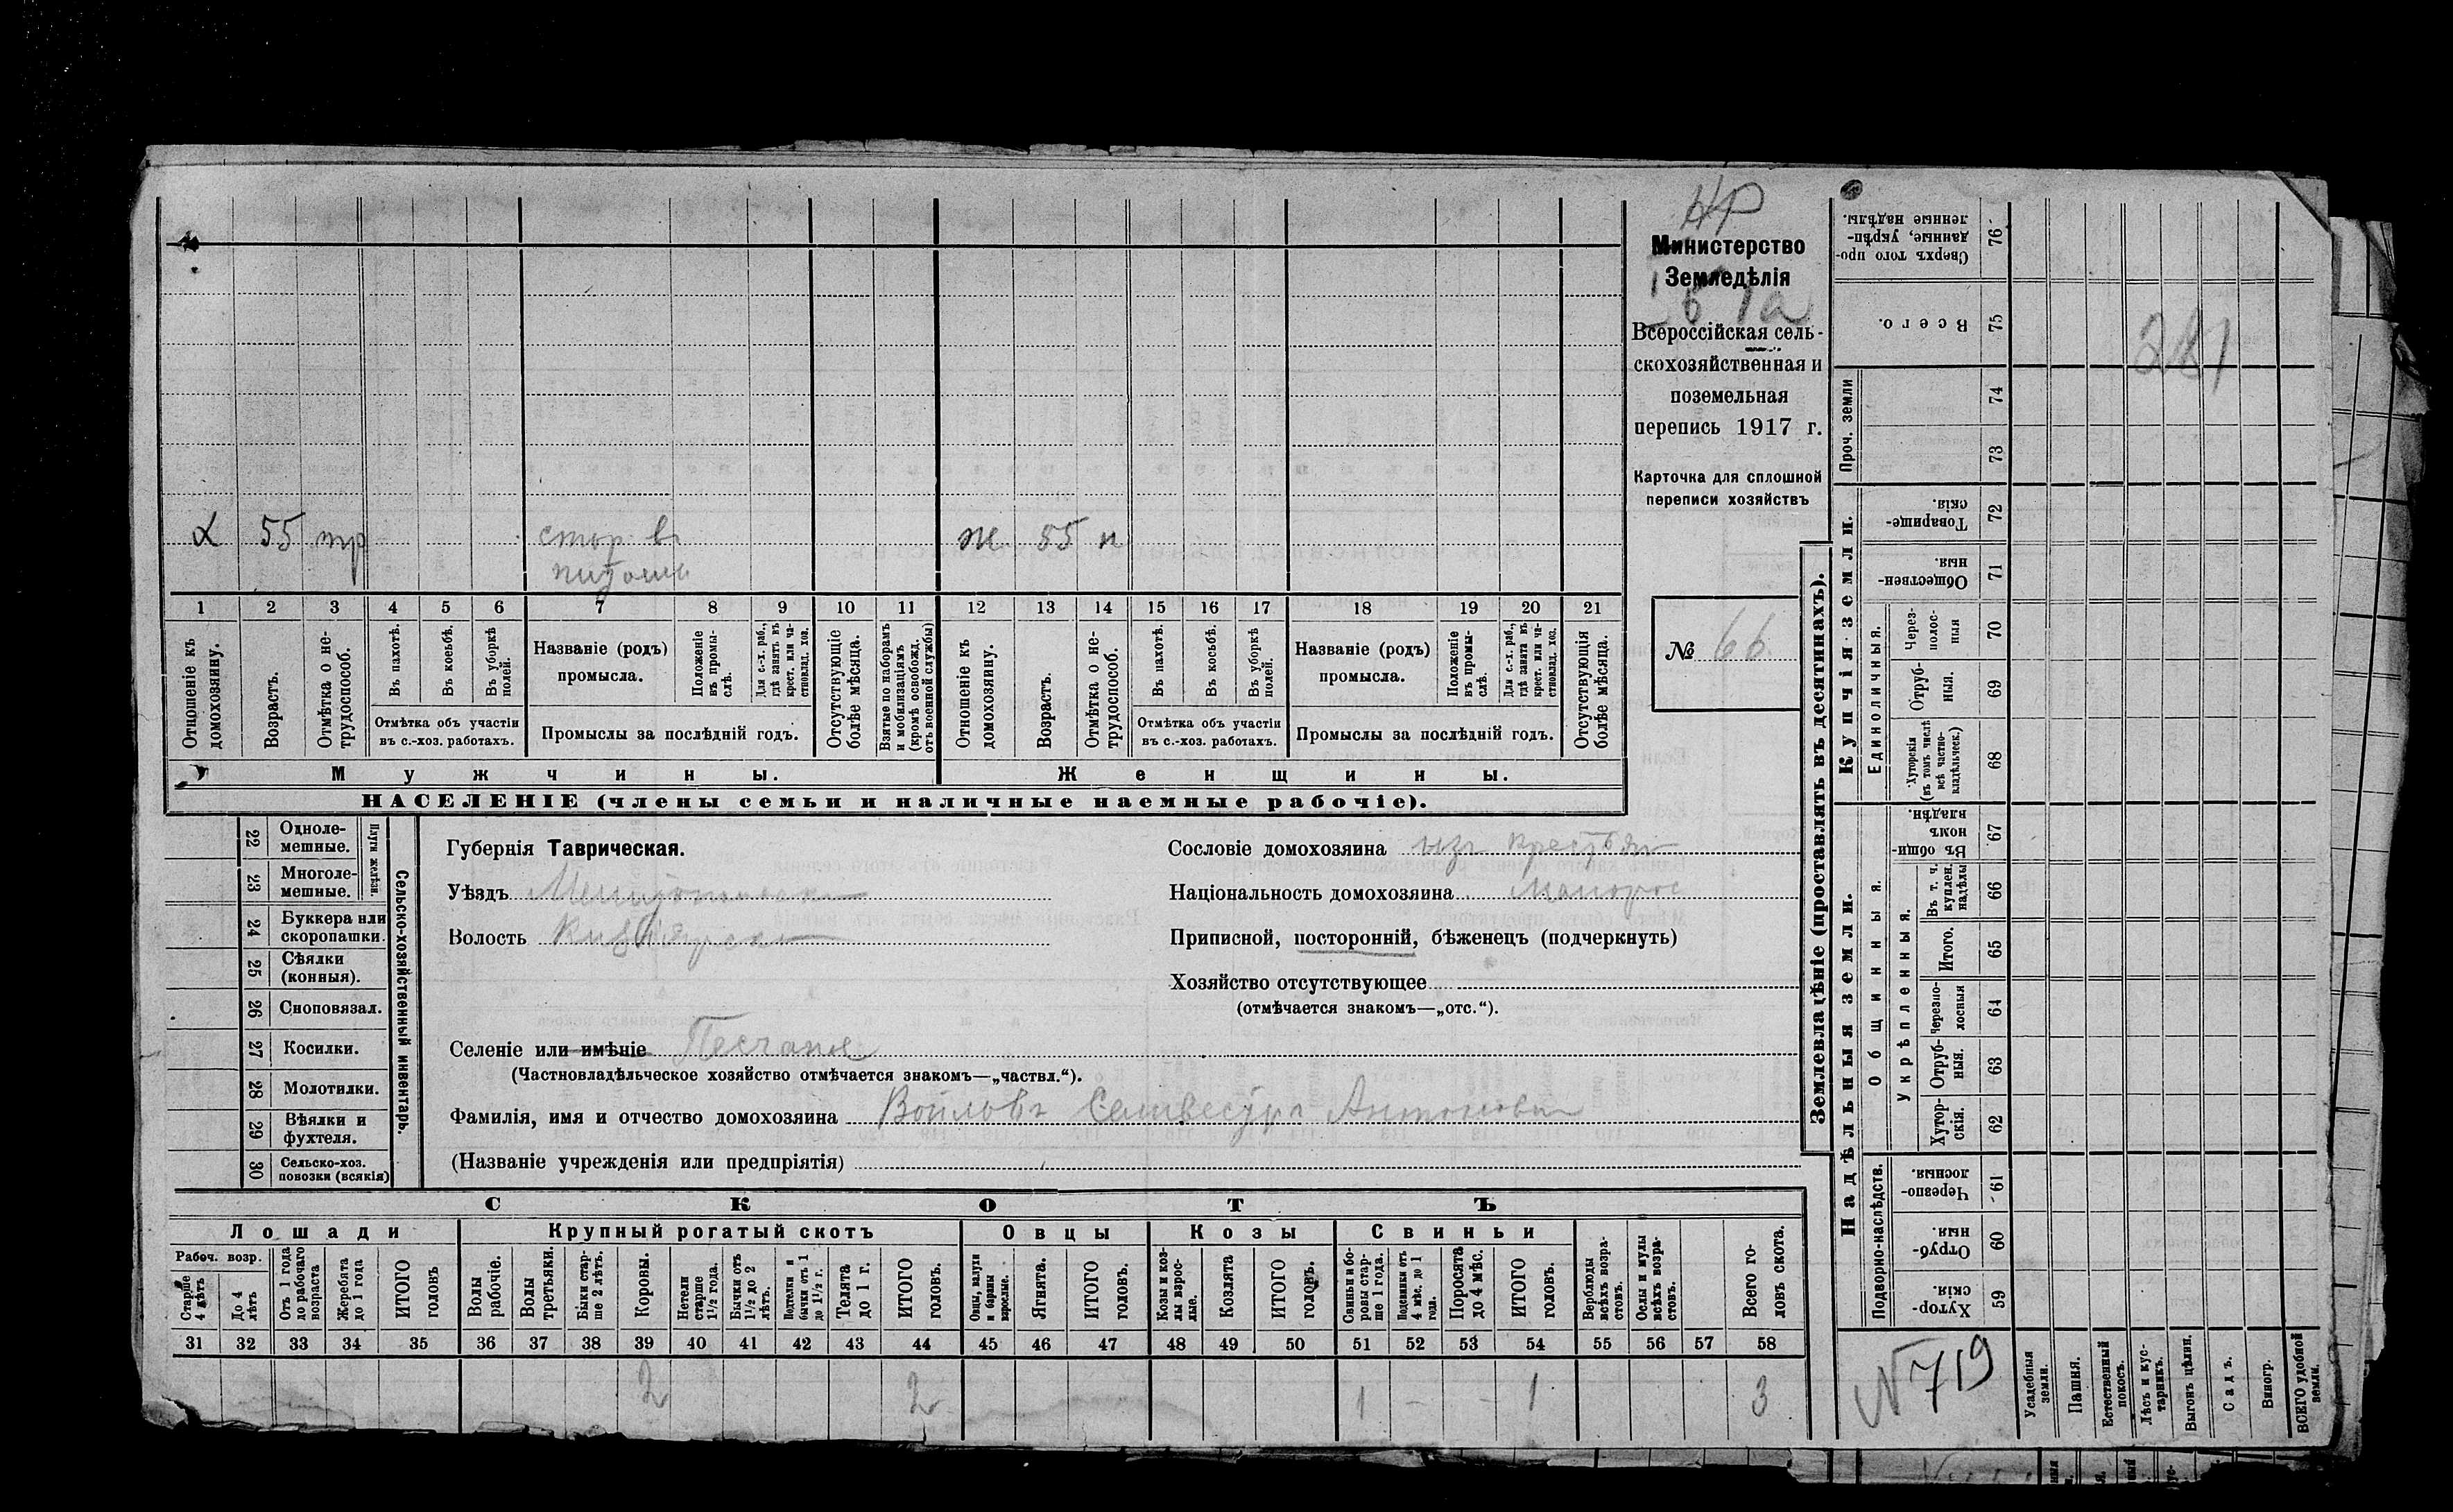 НР
Министерство
Земледѣлія
Всероссійская сель-
скохозяйственная и
поземельная
перепись 1917 г.
Карточка для сплошной
переписи хозяйствъ
№ 66
55 тр стор въ ж 55 п
1 2 3 4 5 6 7 8 9 10 11 12 13 14 15 16 17 18 19 20 21
Отношеніе къ домохозяину.
Возрастъ.
Отмѣтка о не-трудоспособ.
Въ пахотѣ.
Въ косьбѣ.
Въ уборкѣ полей.
Отмѣтка объ участіи
въ с.-хоз. работахъ.
Названіе (родъ)
промысла.
Положеніе въ промы-слѣ.
Для с.-х. раб., гдѣ занятъ въ крест. или ча-стновлад. хоз.
Промыслы за послѣдній годъ.
Отсутствующіе болѣе мѣсяца.
Взятые по наборамъ и мобилизаціямъ (кромѣ освобожд. отъ военной службы)
Отношеніе къ домохозяину.
Возрастъ.
Отмѣтка о не-трудоспособ.
Въ пахотѣ.
Въ косьбѣ.
Въ уборкѣ полей.
Отмѣтка объ участіи
въ с.-хоз. работахъ.
Названіе (родъ)
промысла.
Положеніе въ промы-слѣ.
Для с.-х. раб., гдѣ занята въ крест. или ча-стновлад. хоз.
Промыслы за послѣдній годъ.
Отсутствующія болѣе мѣсяца.
Мужчины.
Женщины.
НАСЕЛЕНІЕ (члены семьи и наличные наемные рабочіе).
22 Одноле-мешные.
23 Многоле-мешные.
Плуги желѣзн.
24 Буккера или скоропашки.
25 Сѣялки (конныя).
26 Сноповязал.
27 Косилки.
28 Молотилки.
29 Вѣялки и фухтеля.
30 Сельско-хоз. повозки (всякія)
Сельско-хозяйственный инвентарь.
Губернія Таврическая.
Уѣздъ
Волость
Сословіе домохозяина изъ крестьян
Національность домохозяина Малорос
Приписной, посторонній, бѣженецъ (подчеркнуть)
Хозяйство отсутствующее
(отмѣчается знакомъ—„отс.“).
Селеніе или имѣніе Песчаное
(Частновладѣльческое хозяйство отмѣчается знакомъ—„частвл.“).
Фамилія, имя и отчество домохозяина Войловъ Селивестръ Антонович
(Названіе учрежденія или предпріятія)
СКОТЪ
Лошади Крупный рогатый скотъ Овцы Козы Свиньи
Рабоч. возр.
Старше 4 лѣтъ
До 4 лѣтъ
Отъ 1 года до рабочаго возраста
Жеребята до 1 года
ИТОГО головъ
Волы рабочіе.
Волы третьяки.
Быки стар-ше 2 лѣтъ.
Коровы.
Нетели старше 1½ года.
Бычки отъ 1½ до 2 лѣтъ.
Подтелки и бычки отъ 1 до 1½ г.
Телята до 1 г.
ИТОГО головъ.
Овцы, валухи и бараны взрослые.
Ягнята.
ИТОГО головъ.
Козы и коз-лы взрос-лые.
Козлята
ИТОГО головъ.
Свиньи и бо-ровы стар-ше 1 года.
Подсвинки отъ 4 мѣс. до 1 года.
Поросята до 4 мѣс.
ИТОГО головъ.
Верблюды всѣхъ возра-стовъ.
Ослы и мулы всѣхъ возра-стовъ.
Всего го-ловъ скота.
31 32 33 34 35 36 37 38 39 40 41 42 43 44 45 46 47 48 49 50 51 52 53 54 55 56 57 58
2 2 1 - - 1 3
Землевладѣніе (проставлять въ десятинахъ).
Купчія земли.
Надѣльныя земли.
76 Сверхъ того про-данные, укрѣп-ленные надѣлы.
75 Всего.
Проч. земли
74
73
72 Товарище-скія.
71 Обществен-ныя.
Единоличныя.
70 Через-полос-ныя
69 Отруб-ныя.
68 Хуторскія (въ томъ числѣ всѣ частно-владѣльческ.)
Общинныя.
67 Въ общи-номъ владѣн.
Укрѣпленныя.
66 Въ т. ч. куплен. надѣлы
65 Итого.
64 Черезпо-лосныя
63 Отруб-ныя.
62 Хутор-скія.
Подворно-наслѣдств.
61 Черезпо-лосныя.
60 Отруб-ныя.
59 Хутор-скія.
N 719
Усадебныя земли.
Пашня.
Естественный покосъ.
Лѣсъ и кус-тарникъ.
Выгонъ цѣлин.
Садъ.
Виногр.
ВСЕГО удобной земли.